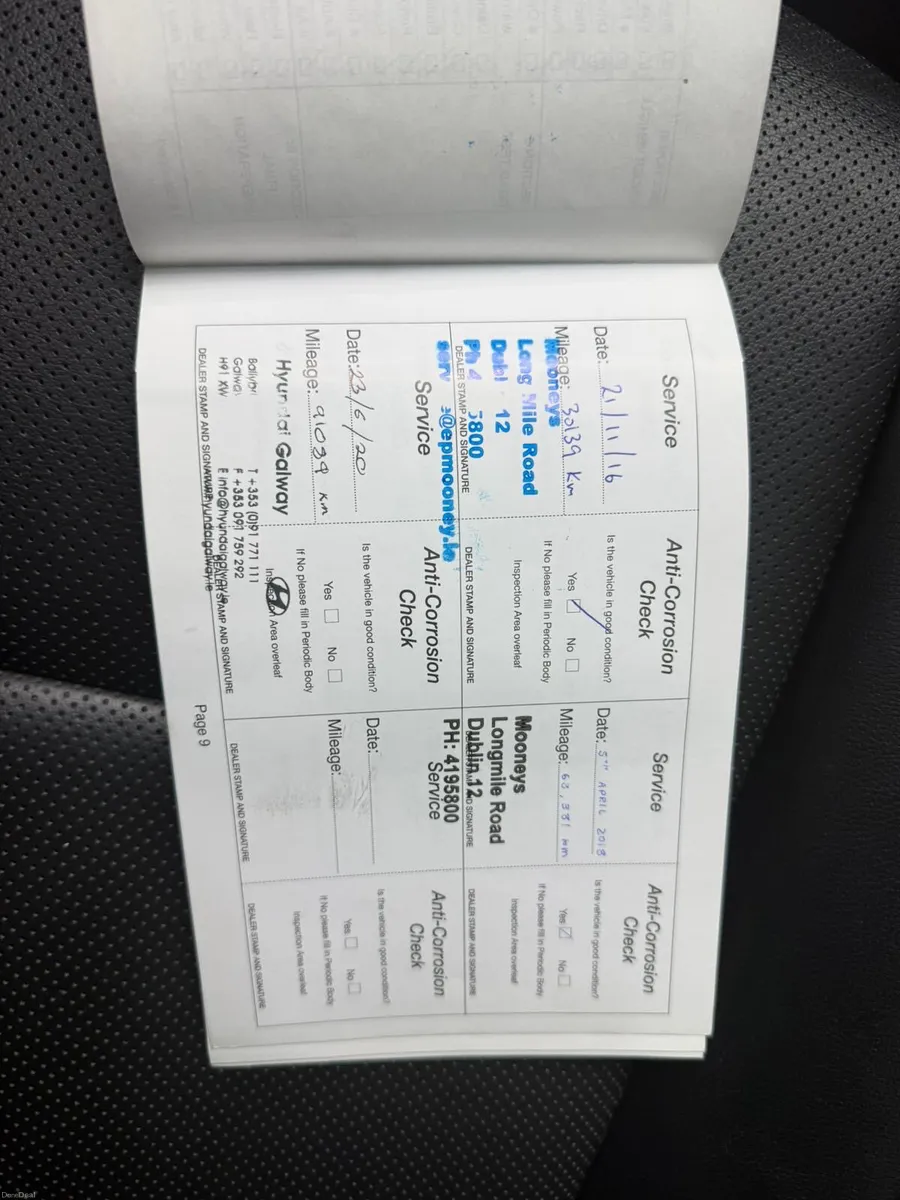 Service
Date: 21/11/16
Mileage: 30139 Km
Mooneys
Long Mile Road
12
5800
@epmooney.ie
DEALER STAMP AND SIGNATURE
Anti-Corrosion
Check
Is the vehicle in good condition?
Yes No
If No please fill in Periodic Body
Inspection Area overleaf
DEALER STAMP AND SIGNATURE
Service
Date: 5TH APRIL 2018
Mileage: 63,381 km
Mooneys
Longmile Road
Dublin 12
PH: 4195800
DEALER STAMP AND SIGNATURE
Anti-Corrosion
Check
Is the vehicle in good condition?
Yes No
If No please fill in Periodic Body
Inspection Area overleaf
DEALER STAMP AND SIGNATURE
Service
Date: 23/6/20
Mileage: 91039 km
Hyundai Galway
T +353 (0)91 771 111
F +353 091 759 292
H91 XW
E info@hyundaigalway.ie
www.hyundaigalway.ie
DEALER STAMP AND SIGNATURE
Anti-Corrosion
Check
Is the vehicle in good condition?
Yes No
If No please fill in Periodic Body
Inspection Area overleaf
DEALER STAMP AND SIGNATURE
Service
Date:
Mileage:
DEALER STAMP AND SIGNATURE
Anti-Corrosion
Check
Is the vehicle in good condition?
Yes No
If No please fill in Periodic Body
Inspection Area overleaf
DEALER STAMP AND SIGNATURE
Page 9
DoneDeal